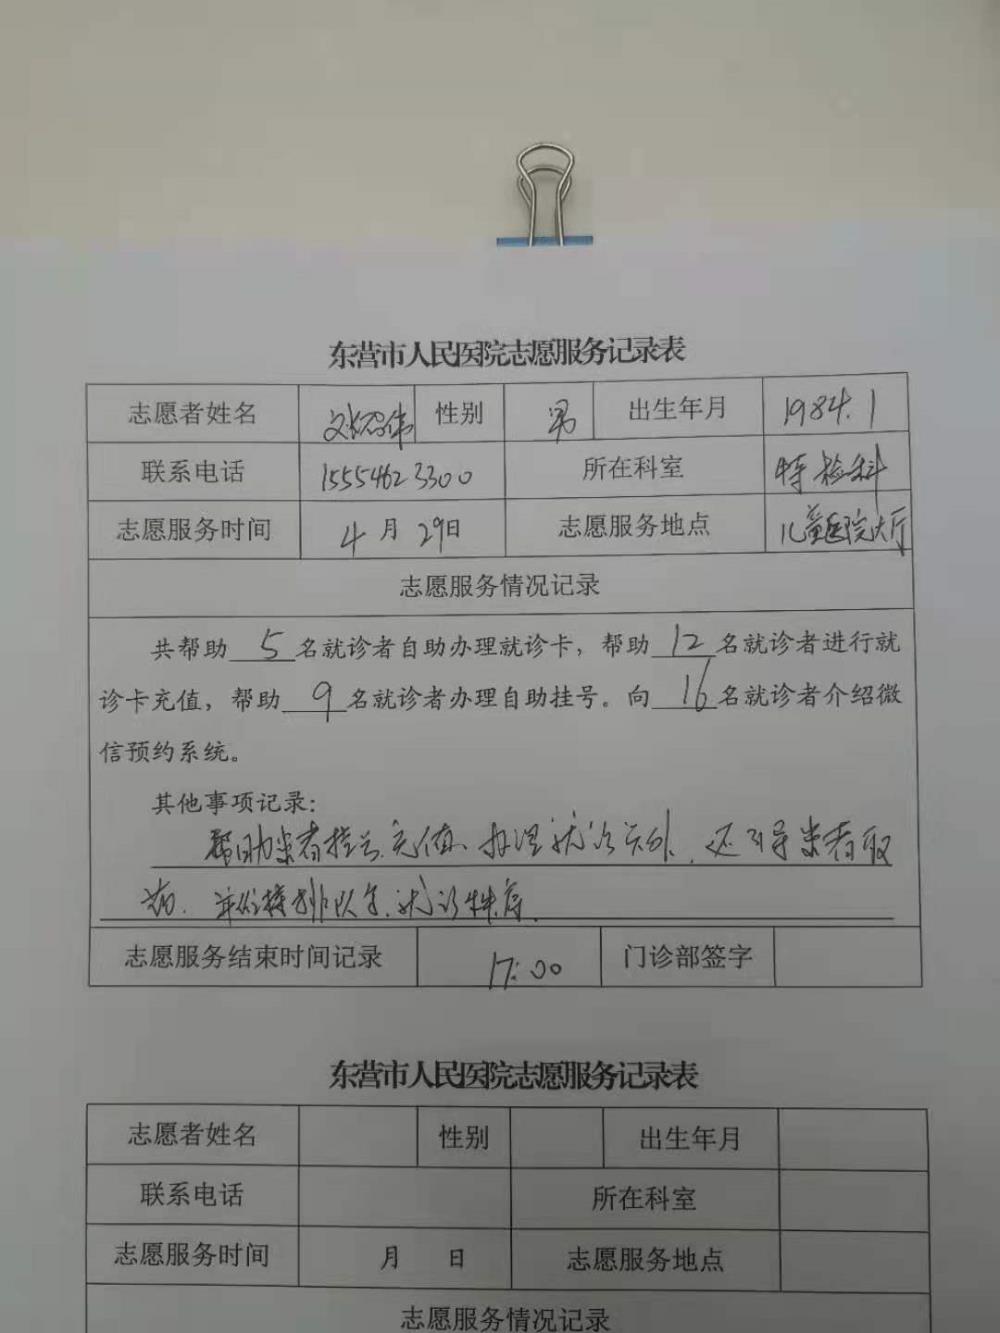 东营市人民医院志愿服务记录表
志愿者姓名 性别 男 出生年月 1984.1
联系电话 15554623300 所在科室 特检科
志愿服务时间 4月29日 志愿服务地点 儿童医院大厅
志愿服务情况记录
共帮助 5 名就诊者自助办理就诊卡，帮助 12 名就诊者进行就
诊卡充值，帮助 9 名就诊者办理自助挂号。向 16 名就诊者介绍微
信预约系统。
其他事项记录：
帮助患者挂号、充值、办理就诊卡外，还引导患者取
药，并维持排队、就诊秩序。
志愿服务结束时间记录 17:00 门诊部签字
东营市人民医院志愿服务记录表
志愿者姓名 性别 出生年月
联系电话 所在科室
志愿服务时间 月 日 志愿服务地点
志愿服务情况记录